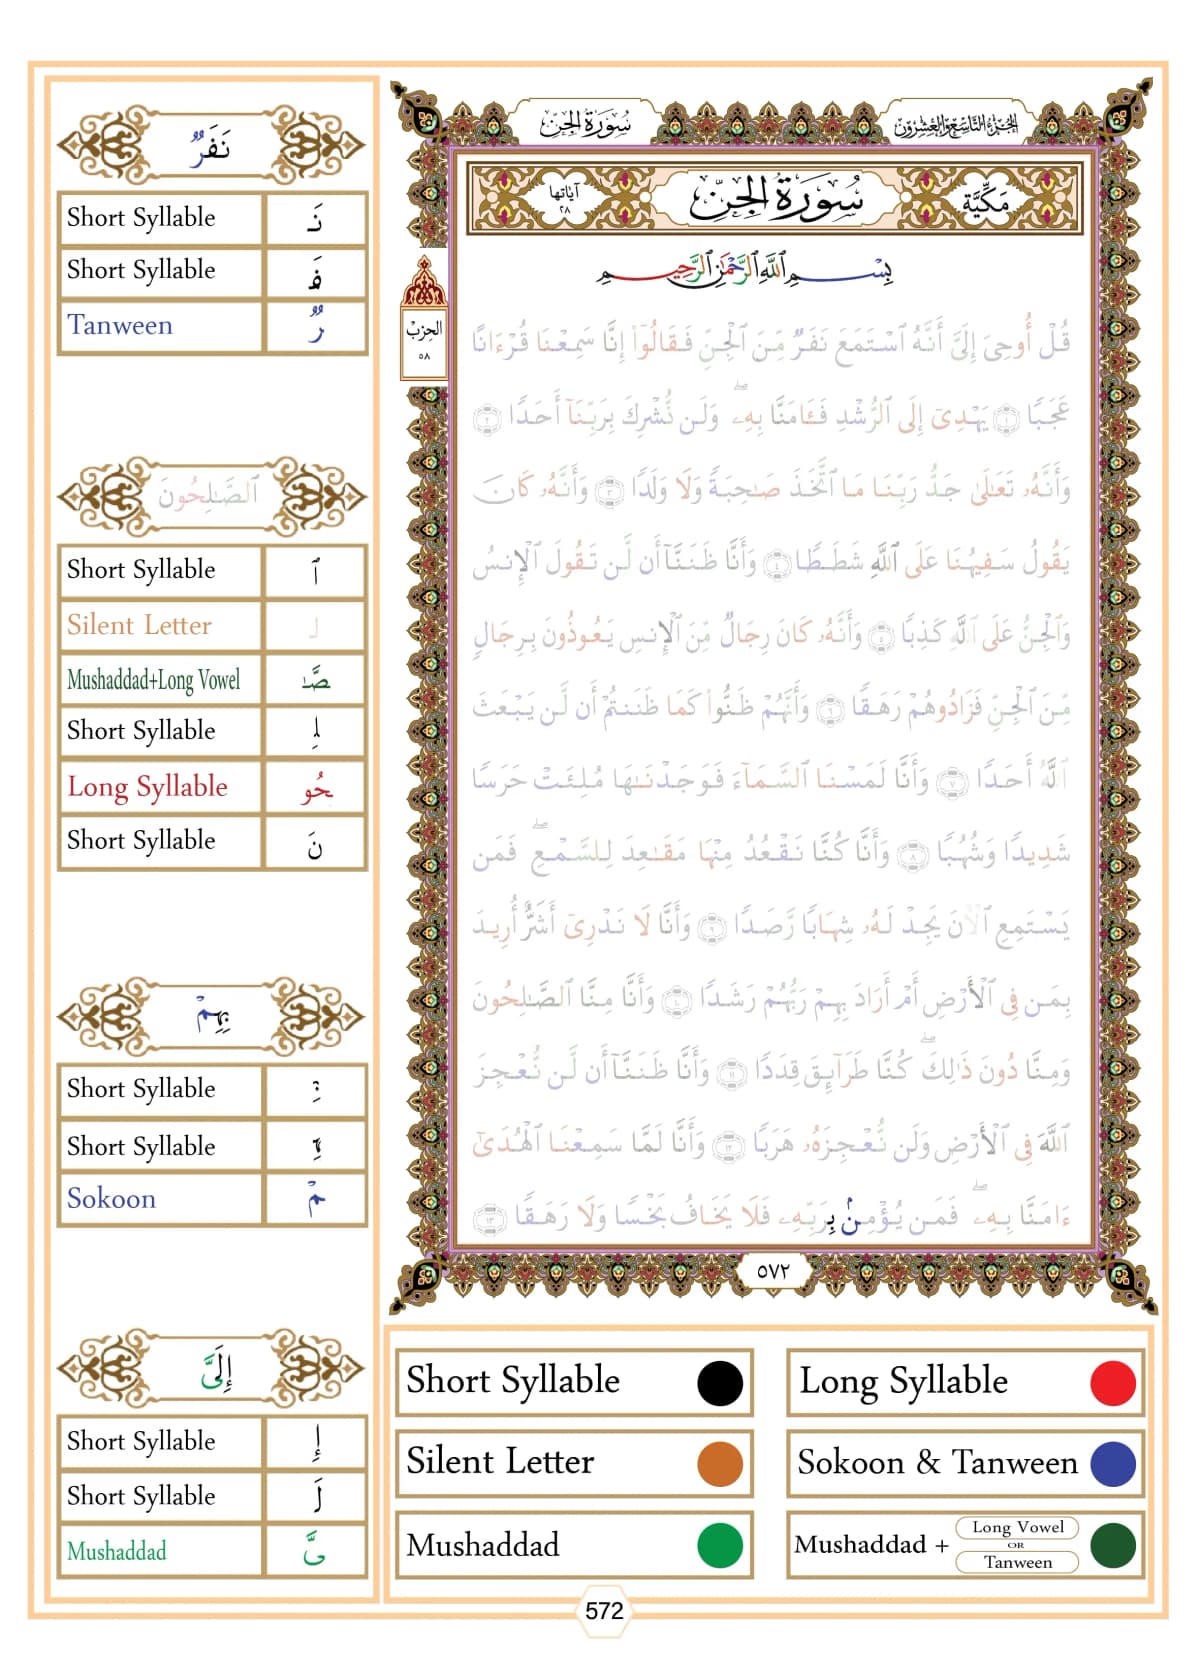 سُورَةُ الجِنِّ
الجُزْءُ التَّاسِعُ وَالعِشْرُون
مَكِّيَّة
سُورَةُ الجِنِّ
آيَاتُهَا
٢٨
بِسْمِ ٱللَّهِ ٱلرَّحْمَٰنِ ٱلرَّحِيمِ
الحِزْبُ
٥٨
قُلْ أُوحِىَ إِلَىَّ أَنَّهُ ٱسْتَمَعَ نَفَرٌ مِّنَ ٱلْجِنِّ فَقَالُوٓا۟ إِنَّا سَمِعْنَا قُرْءَانًا
عَجَبًا ١ يَهْدِىٓ إِلَى ٱلرُّشْدِ فَـَٔامَنَّا بِهِۦ ۖ وَلَن نُّشْرِكَ بِرَبِّنَآ أَحَدًا ٢
وَأَنَّهُۥ تَعَٰلَىٰ جَدُّ رَبِّنَا مَا ٱتَّخَذَ صَٰحِبَةً وَلَا وَلَدًا ٣ وَأَنَّهُۥ كَانَ
يَقُولُ سَفِيهُنَا عَلَى ٱللَّهِ شَطَطًا ٤ وَأَنَّا ظَنَنَّآ أَن لَّن تَقُولَ ٱلْإِنسُ
وَٱلْجِنُّ عَلَى ٱللَّهِ كَذِبًا ٥ وَأَنَّهُۥ كَانَ رِجَالٌ مِّنَ ٱلْإِنسِ يَعُوذُونَ بِرِجَالٍ
مِّنَ ٱلْجِنِّ فَزَادُوهُمْ رَهَقًا ٦ وَأَنَّهُمْ ظَنُّوا۟ كَمَا ظَنَنتُمْ أَن لَّن يَبْعَثَ
ٱللَّهُ أَحَدًا ٧ وَأَنَّا لَمَسْنَا ٱلسَّمَآءَ فَوَجَدْنَٰهَا مُلِئَتْ حَرَسًا
شَدِيدًا وَشُهُبًا ٨ وَأَنَّا كُنَّا نَقْعُدُ مِنْهَا مَقَٰعِدَ لِلسَّمْعِ ۖ فَمَن
يَسْتَمِعِ ٱلْـَٔانَ يَجِدْ لَهُۥ شِهَابًا رَّصَدًا ٩ وَأَنَّا لَا نَدْرِىٓ أَشَرٌّ أُرِيدَ
بِمَن فِى ٱلْأَرْضِ أَمْ أَرَادَ بِهِمْ رَبُّهُمْ رَشَدًا ١٠ وَأَنَّا مِنَّا ٱلصَّٰلِحُونَ
وَمِنَّا دُونَ ذَٰلِكَ ۖ كُنَّا طَرَآئِقَ قِدَدًا ١١ وَأَنَّا ظَنَنَّآ أَن لَّن نُّعْجِزَ
ٱللَّهَ فِى ٱلْأَرْضِ وَلَن نُّعْجِزَهُۥ هَرَبًا ١٢ وَأَنَّا لَمَّا سَمِعْنَا ٱلْهُدَىٰٓ
ءَامَنَّا بِهِۦ ۖ فَمَن يُؤْمِنۢ بِرَبِّهِۦ فَلَا يَخَافُ بَخْسًا وَلَا رَهَقًا ١٣
٥٧٢
نَفَرٌ
Short Syllable نَـ
Short Syllable فَـ
Tanween رٌ
ٱلصَّٰلِحُونَ
Short Syllable ٱ
Silent Letter لـ
Mushaddad+Long Vowel صَّٰـ
Short Syllable لِـ
Long Syllable حُو
Short Syllable نَ
بِهِمْ
Short Syllable بِـ
Short Syllable هِـ
Sokoon مْ
إِلَىَّ
Short Syllable إِ
Short Syllable لَـ
Mushaddad ىَّ
Short Syllable
Long Syllable
Silent Letter
Sokoon & Tanween
Mushaddad
Mushaddad + Long Vowel OR Tanween
572